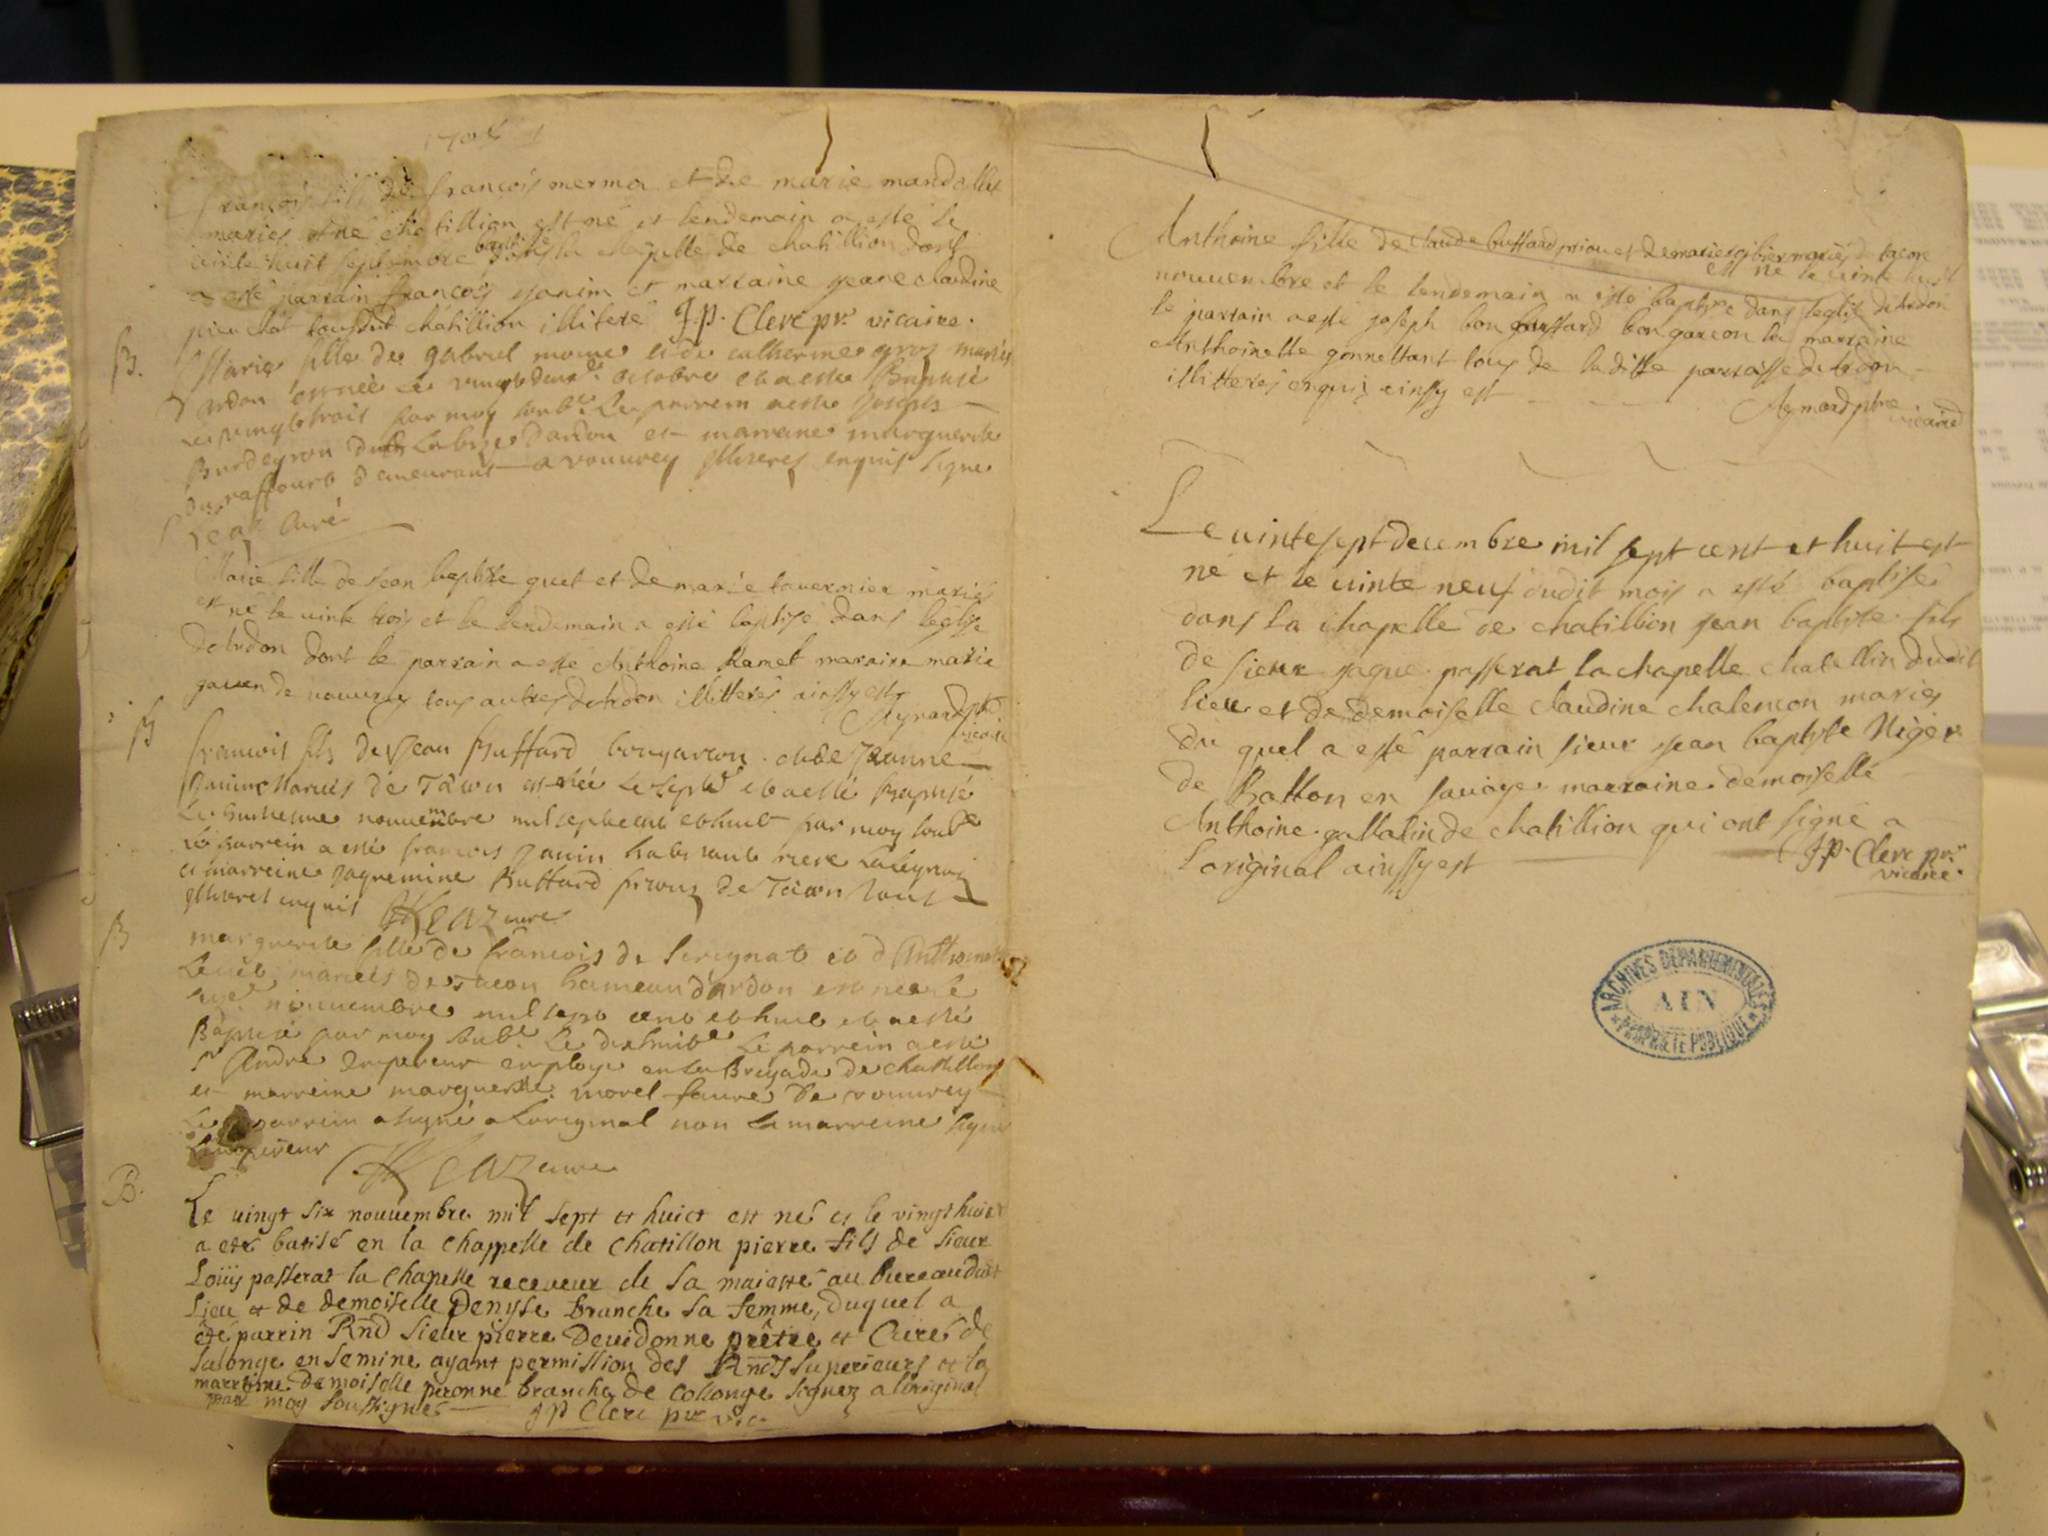 1708
François fils de françois mermoz et de marie mandallet
mariés né chatillion est né et lendemain a esté le
vinte huit septembre baptisé dans la chapelle de chatillion dont
a esté parrain françois janim et marraine jeane claudine
tous dud chatillion illiteré J.p. Clerc ptr. vicaire.
B.
Marie fille de gabriel moine et de catherine gros mariés
dardon est née le vingt deux octobre et a esté Baptisé
le vingt trois par moy soub.e Le parrein a esté Joseph
Burdeyron dud Labise Dardon et marreine marguerite
du raffourt demeurant a vouvrey illiteres enquis signe
Reaz Curé
Marie fille de Jean baptiste quet et de marie tavernier mariés
est né le vinte trois et le lendemain a esté baptisé dans léglise
de Ardon dont le parrain a esté Anthoine Ramel maraine marie
de vouvrey tous autres de Ardon illitterés ainsy est
Aymard ptre
vicaire
B
francois fils de Jean Buffard bongarcon et de Jeanne
Janin Mariés de Tacon est née le sept.e et a esté Baptisé
Le huitiesme nouvembre mil sept cent et huit par moy soub.e
Le parrein a esté francois Janin
et marreine Jaquemine Buffard priouz de Tacon tous
illiteres enquis Reaz cure
B
marguerite fille de francois de Serignat et d'Anthoine
mariés de Tacon hameau d'Ardon est née le
nouvembre mil sept cent et huit et a esté
Baptisé par moy soub.e Le dixhuit.e Le parrein a esté
s.r Andre Empereur employe en la Brigade de chatillon
et marreine marguerite morel faure de vouvrey
Le parrein a signé a Loriginal non la marreine signé
Lempereur Reaz cure
B.
Le vingt six nouvembre mil sept et huict est né et le vingt huict
a esté batisé en la chappelle de Chatillon pierre fils de sieur
Loüis passerat la Chapelle receveur de sa maiesté au bureau dudit
Lieu et de demoiselle Denyse branche sa femme, duquel a
été parrin Rnd sieur pierre Devidonne prêtre et Curé de
Salonge en semine ayant permission des Rnds superieurs et la
marreine demoiselle peronne branche de Collonge signez a l'original
par moy soussignés J p Clerc ptr vic.
Anthoine fille de claude buffard priou et de marie gibier mariés de tacon
est né le vinte huit
nouvembre et le lendemain a esté baptise dans léglise de Ardon
le parrain a esté joseph bon buffard bongarcon la marraine
Anthoinette gonnettant tous de laditte parroisse de Ardon
illitteres enquis ainsy est
Aymard ptre
vicaire
Le vinte sept decembre mil sept cent et huit est
né et le vinte neuf dudit mois a esté baptisé
dans la chapelle de chatillion jean baptiste fils
de sieur jaque passerat la chapelle chatellin dudit
lieu et de demoiselle claudine chalencon mariés
du quel a esté parrain sieur jean baptiste Niger
de Batton en savoye marraine demoiselle
Anthoine gallatin de chatillion qui ont signé a
Loriginal ainssy est
J.p. Clerc ptr.
vicaire.
ARCHIVES DÉPARTEMENTALES
AIN
PROPRIÉTÉ PUBLIQUE